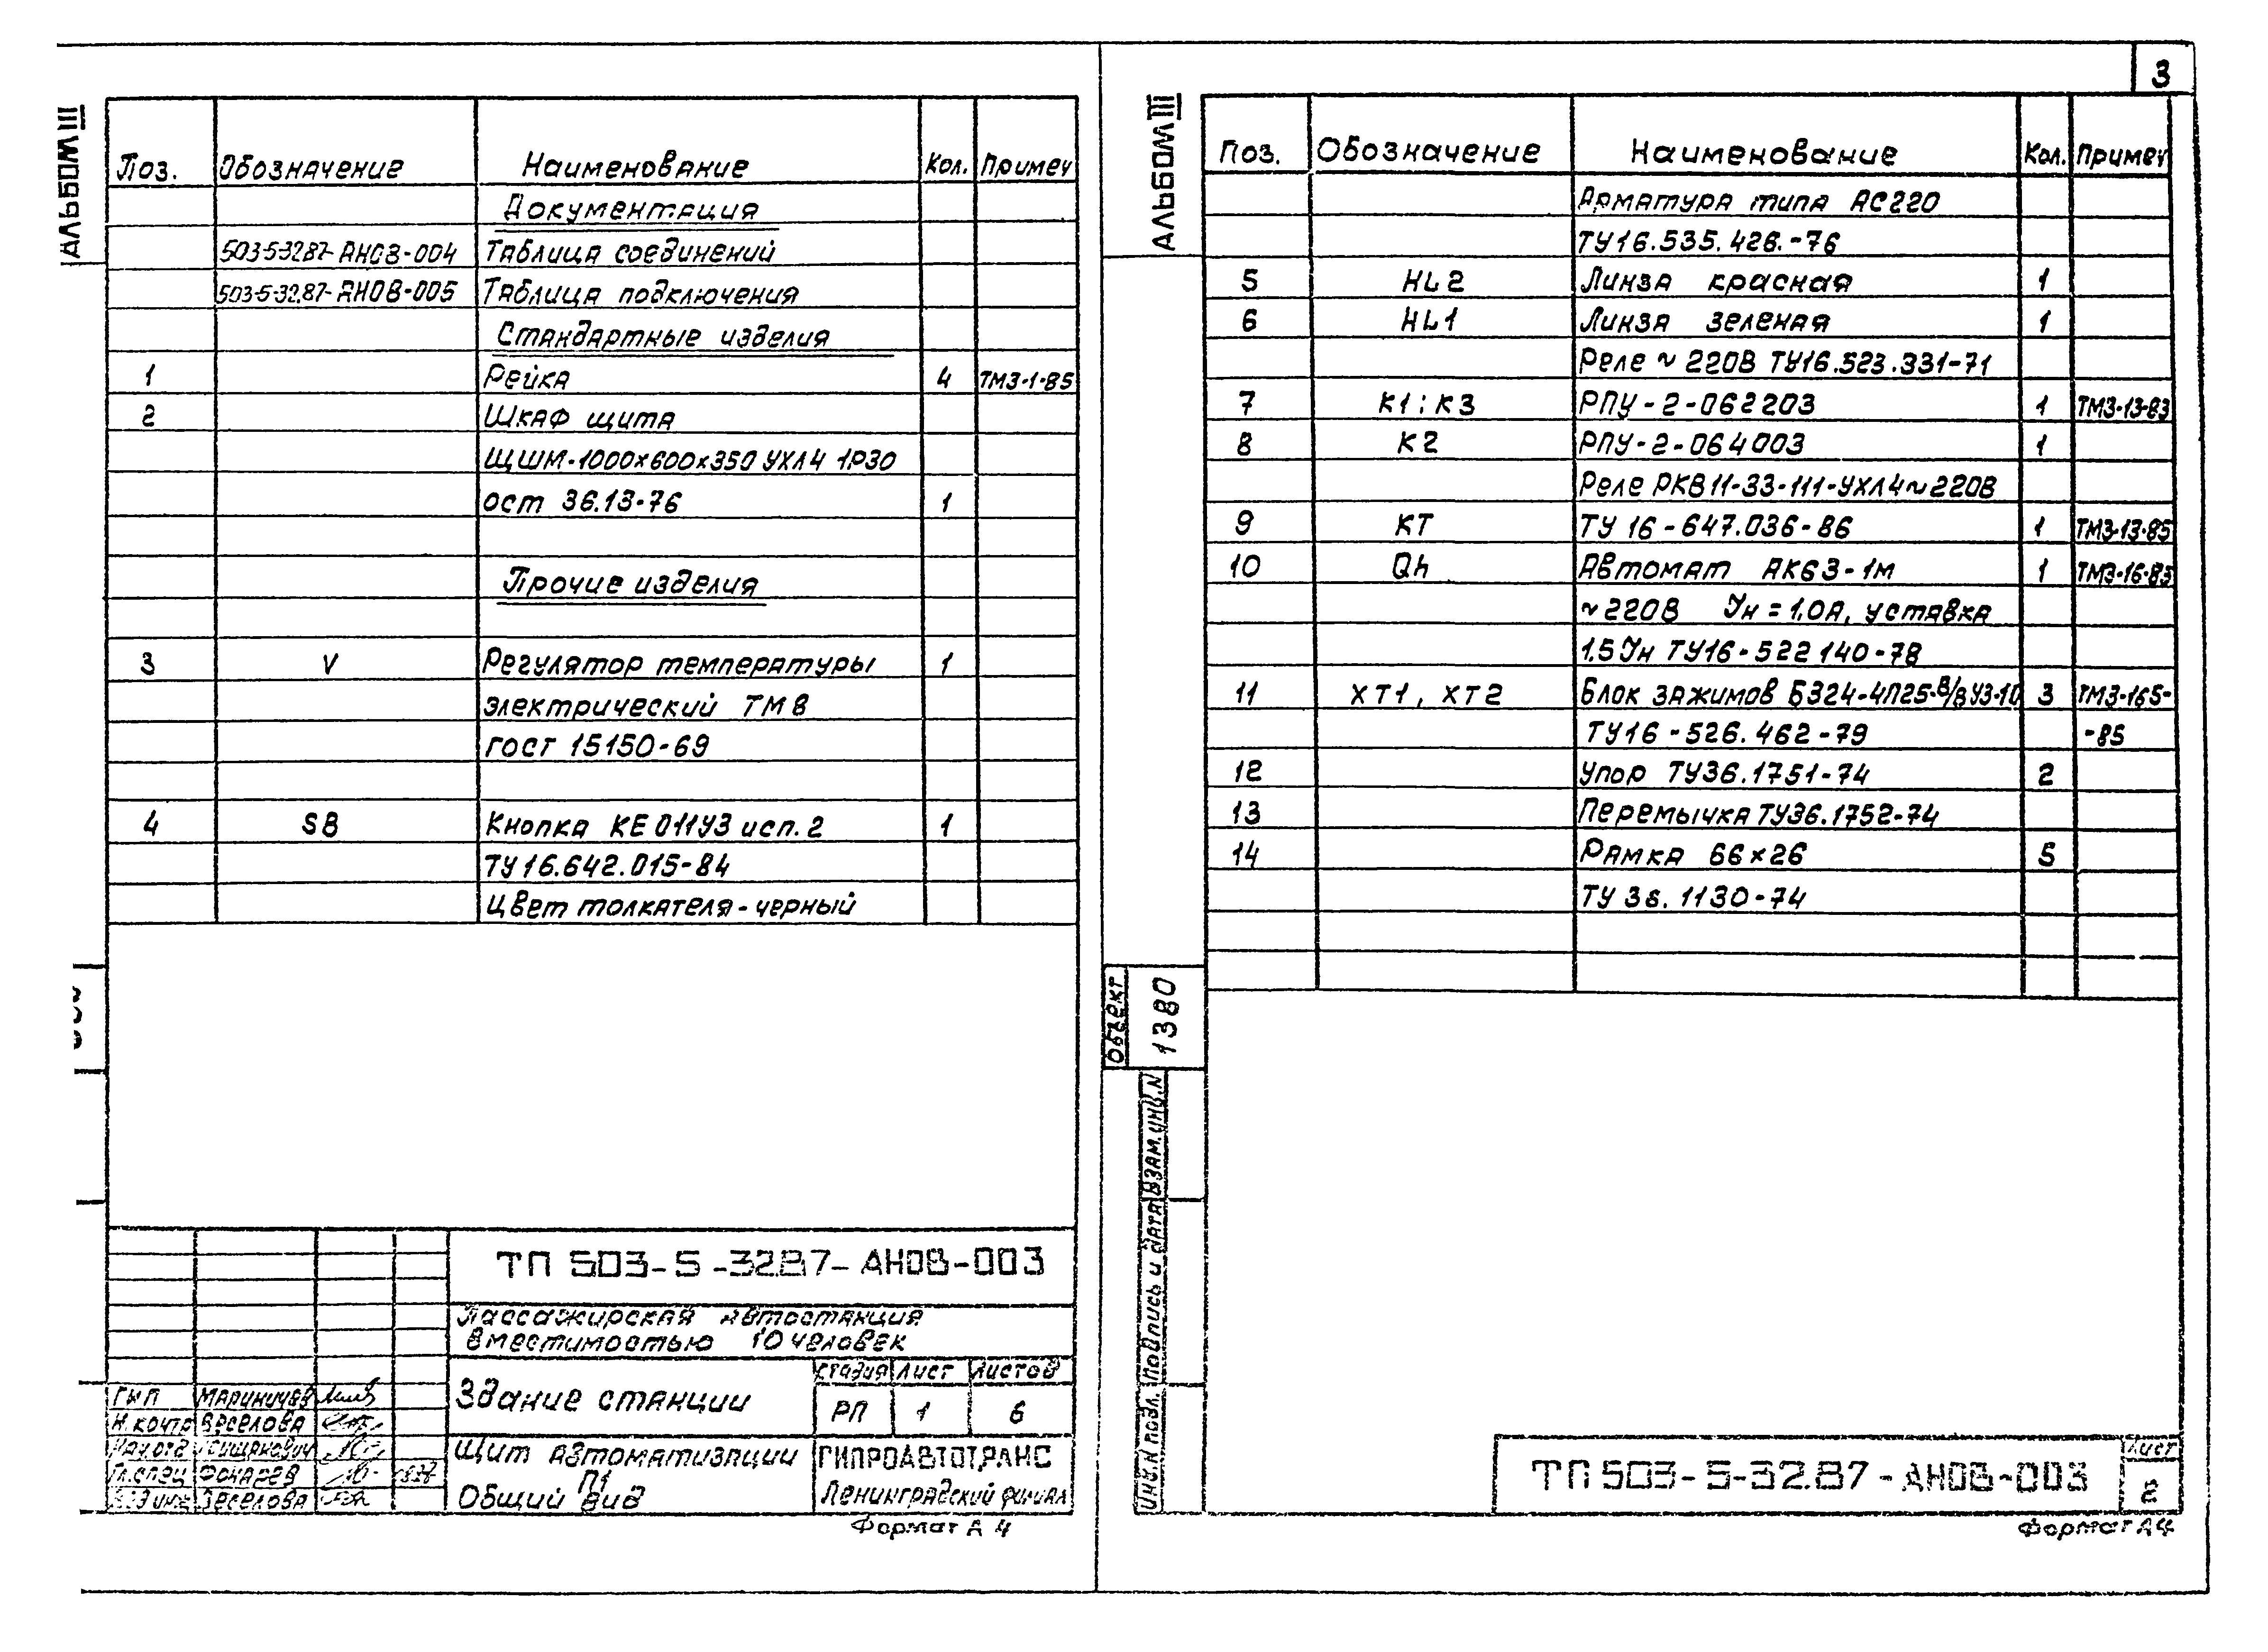 АЛЬБОМ III
Поз. Обозначение Наименование Кол. Примеч
Документация
503-5-32.87-АНОВ-004 Таблица соединений
503-5-32.87-АНОВ-005 Таблица подключения
Стандартные изделия
1 Рейка 4 ТМ3-1-85
2 Шкаф щита
ЩШМ-1000×600×350 УХЛ4 1Р30
ост 36.13-76 1
Прочие изделия
3 V Регулятор температуры 1
электрический ТМ8
гост 15150-69
4 SB Кнопка КЕ011У3 исп. 2 1
ТУ16.642.015-84
Цвет толкателя-черный
ТП 503-5-32.87-АНОВ-003
Пассажирская автостанция
вместимостью 10 человек
Здание станции
Стадия Лист Листов
РП 1 6
Щит автоматизации
П1
Общий вид
ГИПРОАВТОТРАНС
Ленинградский филиал
ГИП
Н.контр Веселова
Нач.отд
Гл.спец Фокарев
Вед инж Веселова
Формат А4
3
АЛЬБОМ III
Поз. Обозначение Наименование Кол. Примеч
Арматура типа АС220
ТУ16.535.426.-76
5 HL2 Линза красная 1
6 HL1 Линза зеленая 1
Реле ~ 220В ТУ16.523.331-71
7 К1; К3 РПУ-2-062203 1 ТМ3-13-83
8 К2 РПУ-2-064003 1
Реле РКВ11-33-111-УХЛ4~220В
9 КТ ТУ 16-647.036-86 1 ТМ3-13-85
10 Qh Автомат АК63-1м 1 ТМ3-16-85
~220В Ун=1.0А, уставка
1.5Ун ТУ16-522 140-78
11 ХТ1, ХТ2 Блок зажимов Б324-4П25-В/ВУ3-10 3 ТМ3-165-
ТУ16-526.462-79 -85
12 Упор ТУ36.1751-74 2
13 Перемычка ТУ36.1752-74
14 Рамка 66×26 5
ТУ 36.1130-74
Объект 1380
Взам.инв.N
Подпись и дата
Инв.N подл.
ТП 503-5-32.87-АНОВ-003
Лист
2
Формат А4